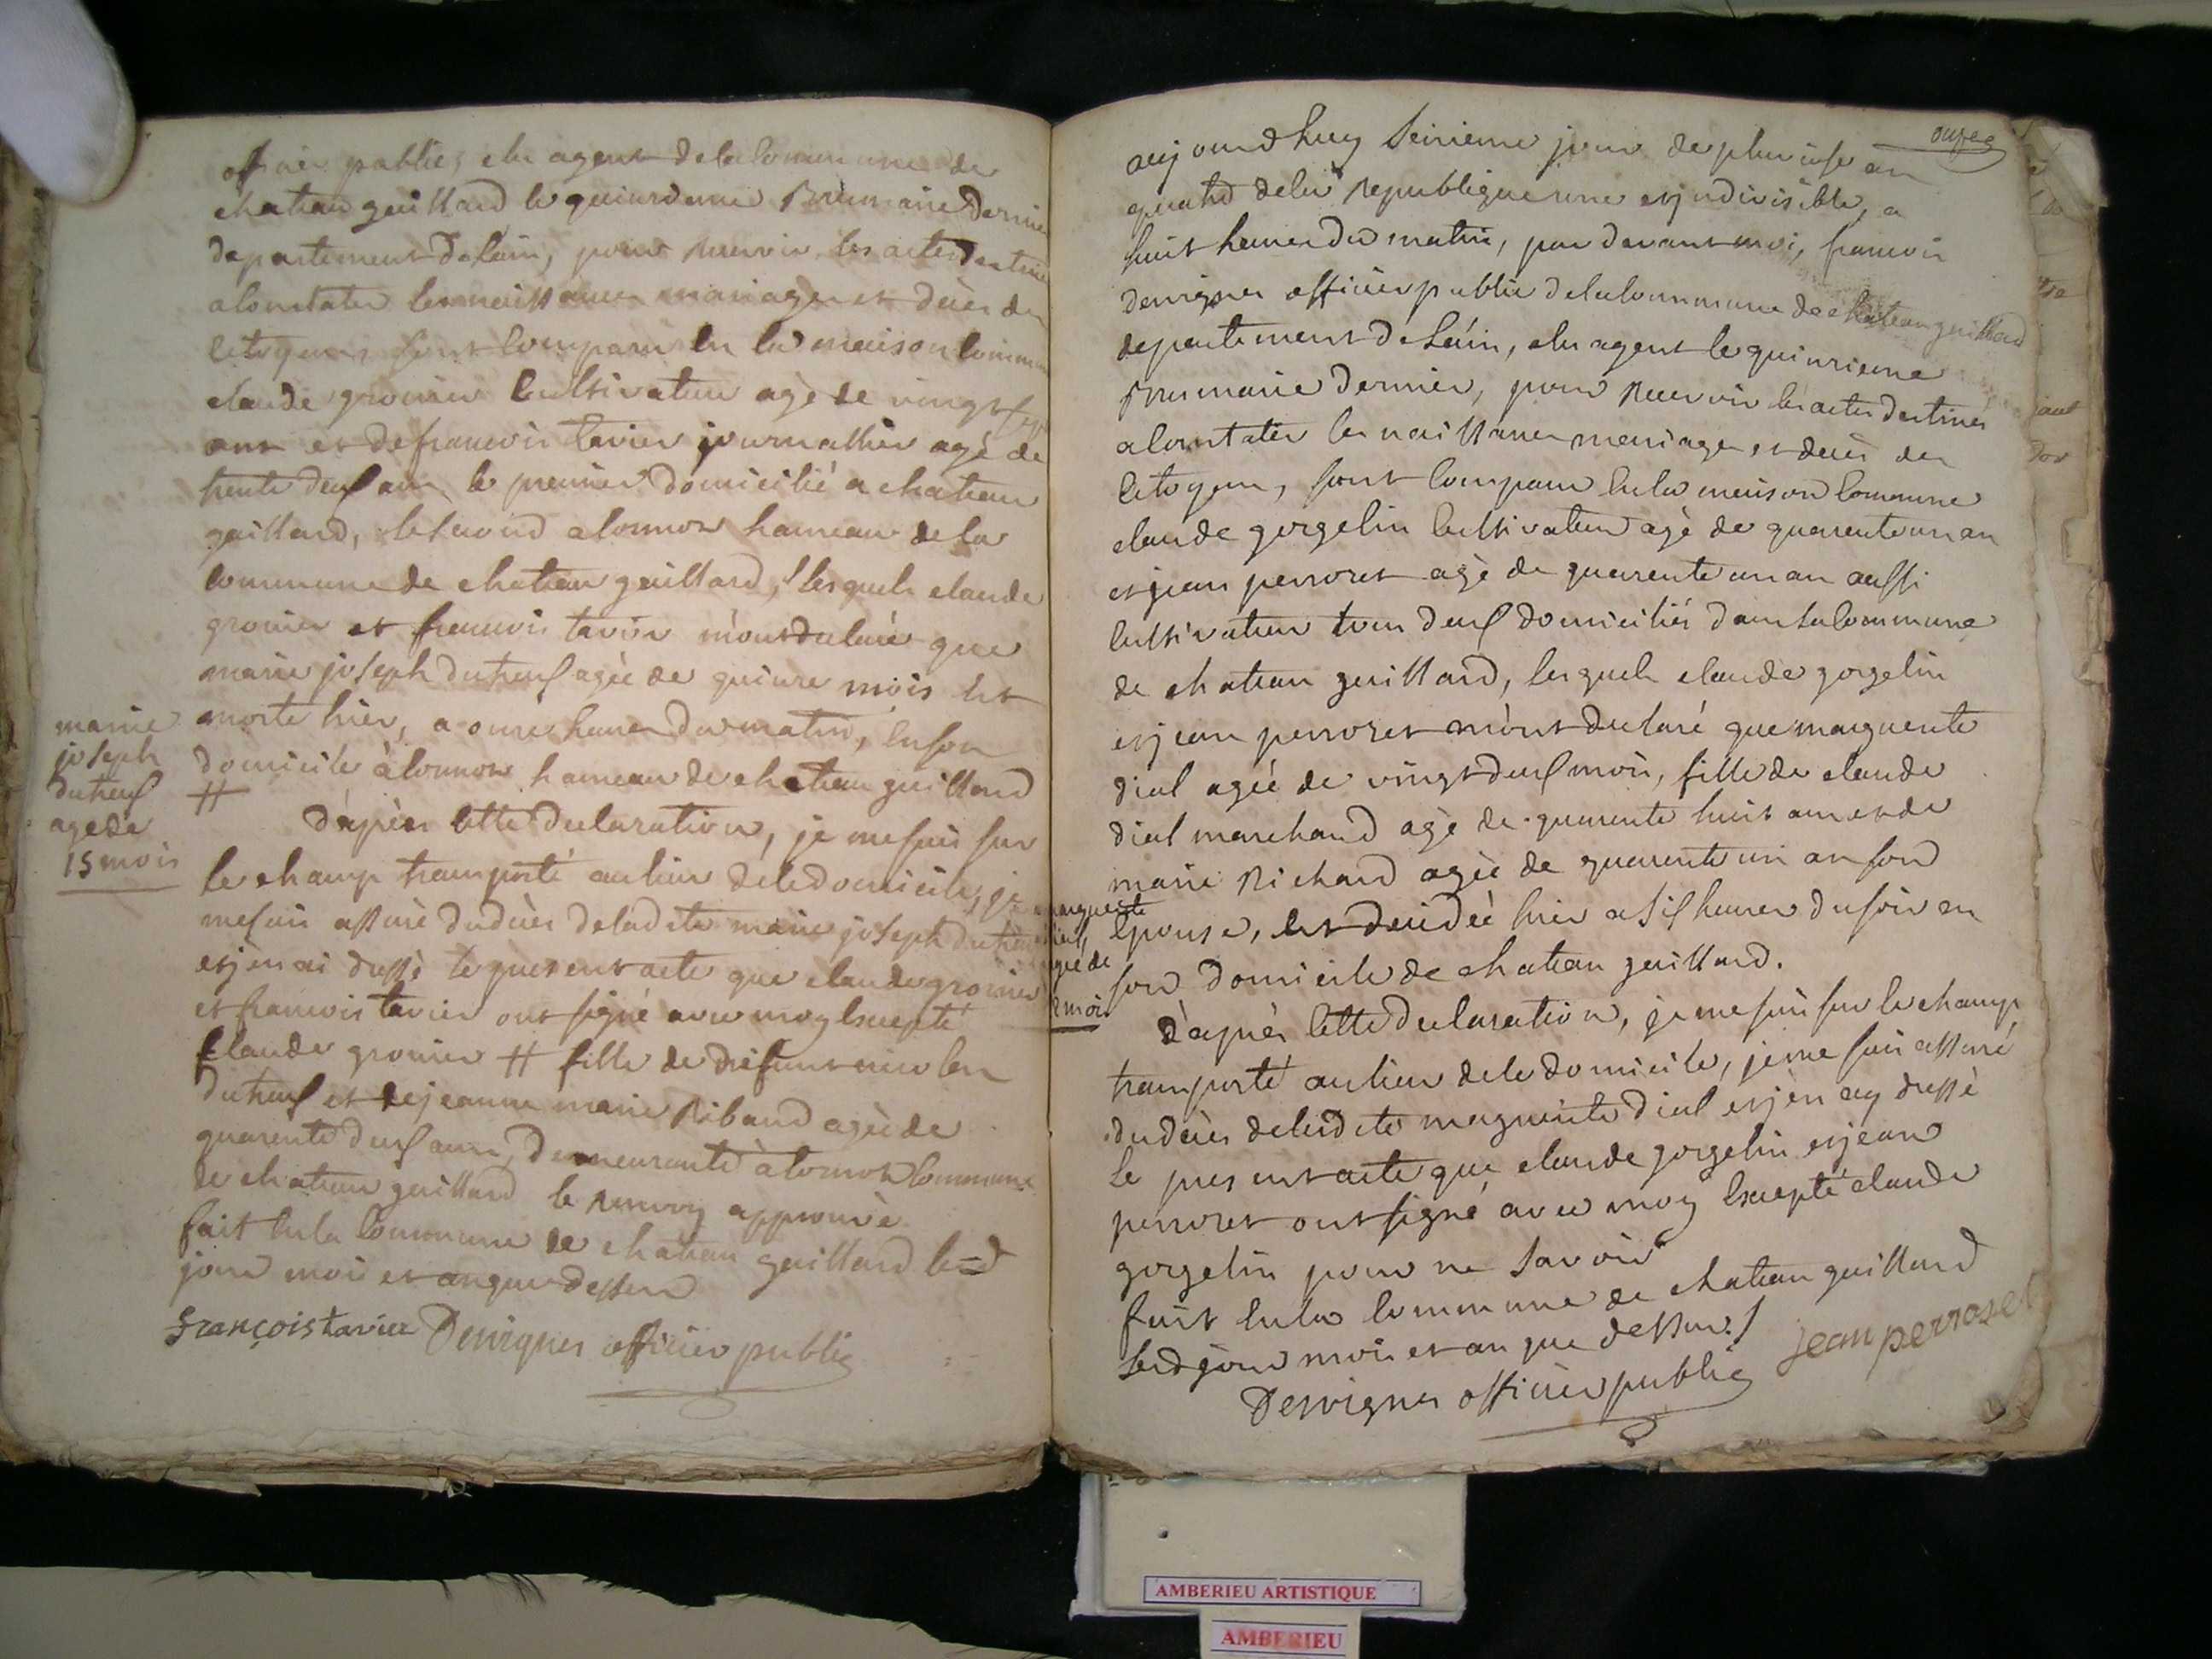 officier public, elu agent de la Commune de
chateau gaillard le quinsieme Brumaire dernier
departement de lain, pour recevoir les actes destinés
a Constater les naissances mariages et décès des
Citoyens sont Comparu En la maison Commune
claude gronier Cultivateur agé de vingt sept
ans et de francois tavier journallier agé de
trente deux ans le premier domicilié a chateau
gaillard, le second a Cormoz hameau de la
Commune de chateau gaillard, lesquels claude
gronier et francois tavier m'ont declaré que
marie joseph dutreux agée de quinze mois Est
morte hier, a onze heures du matin, En son
domicile à Cormoz hameau de chateau gaillard
marie
joseph
dutreux
agede
15 mois
#
d'après Cette declaration, je me suis sur
le champ transporté au lieu de le domicile, je
me suis assuré du décès de ladite marie joseph dutreux
et j'en ai dressé le present acte que claude gronier
et francois tavier ont signé avec moy Excepté
Claude gronier # fille de défunt nicolas
dutreux et de jeanne marie Ribaud agée de
quarente deux ans, demeurante à Cormoz Commune
de chateau gaillard le renvoy approuvé
fait En la Commune de chateau gaillard led
jour mois et an que dessus
François tavier Desvignes officier public
onzes
aujourdhuy Seizieme jour de pluviose an
quatre de la Republique une et jndivisible, a
huit heures du matin, par devant moi, francois
desvignes officier public de la Commune de chateau gaillard
departement de L'ain, elu agent le quinzieme
Brumaire dernier, pour Recevoir les actes destinés
a Constater les naissances mariages et décès des
Citoyens, sont Comparu En la maison Commune
claude gorgelin Cultivateur agé de quarente un an
et jean perrozet agé de quarente un an aussi
Cultivateur tous deux domiciliés dans la Commune
de chateau gaillard, lesquels claude gorgelin
et jean perrozet m'ont declaré que marguerite
dial agée de vingt deux mois, fille de claude
dial marchand agé de quarente huit ans et de
marie Richard agée de quarente un an son
marguerite
dial,
agée de
22 mois
Epouse, Est decidée hier a six heures du soir en
son domicile de chateau gaillard.
d'après Cette declaration, je me suis sur le champ
transporté au lieu de le domicile, je me suis assuré
du décès de ladite marguerite dial et j'en ay dressé
le present acte que claude gorgelin et jean
perrozet ont signé avec moy Excepté claude
gorgelin pour ne Savoir
fait En la Commune de chateau gaillard
led jour mois et an que dessus./
jean perroset
Desvignes officier public
AMBERIEU ARTISTIQUE
AMBERIEU